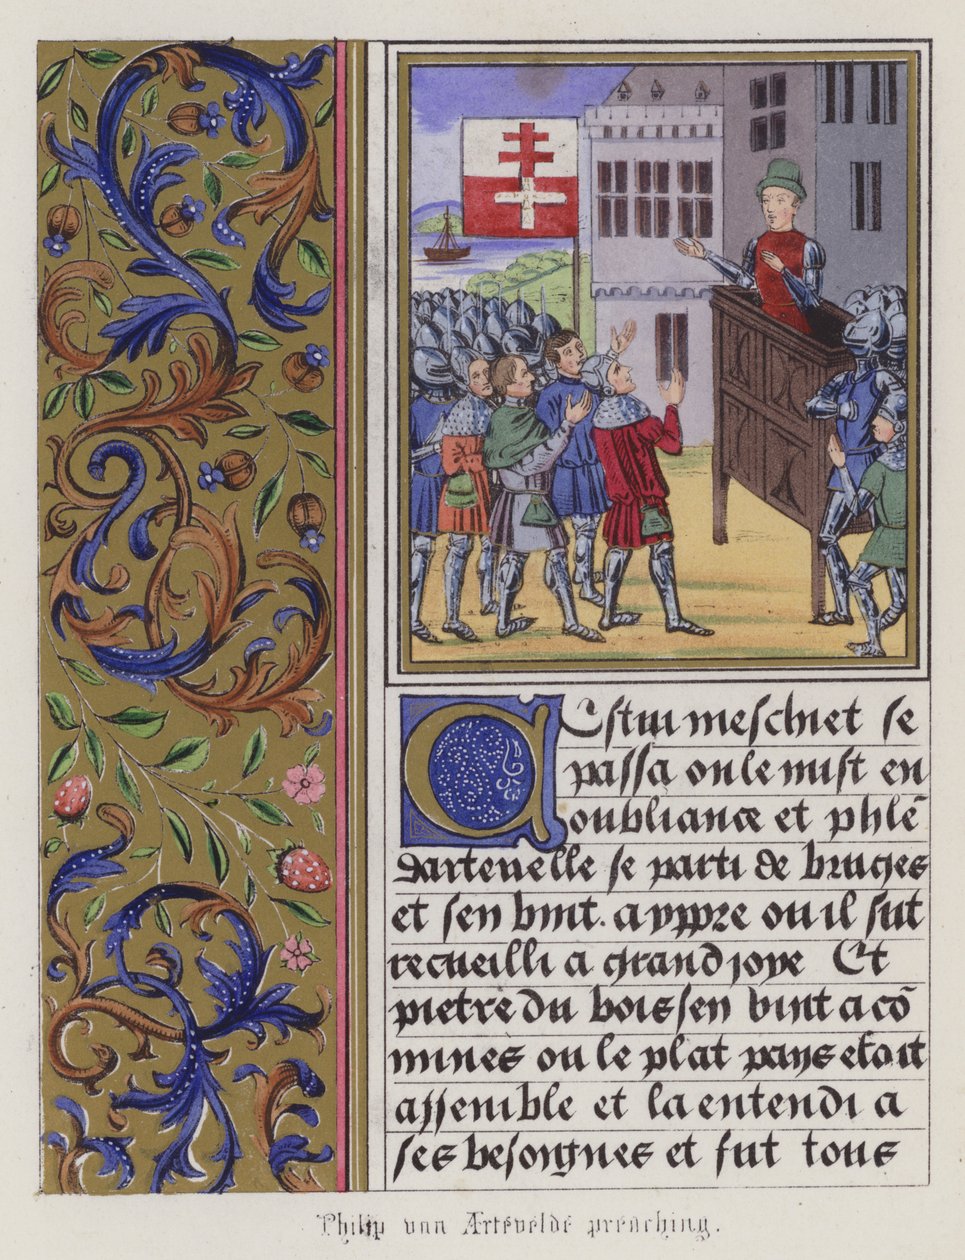 Cestui meschiet se
passa on le mist en
oubliance et phlē
dartevelle se parti de bruges
et sen vint. a yppre ou il fut
recueilli a grand joye Et
pietre du bois sen vint a cō
mines ou le plat pays estoit
assemble et la entendi a
ses besongnes et fut tous
Philip van Artevelde preaching.